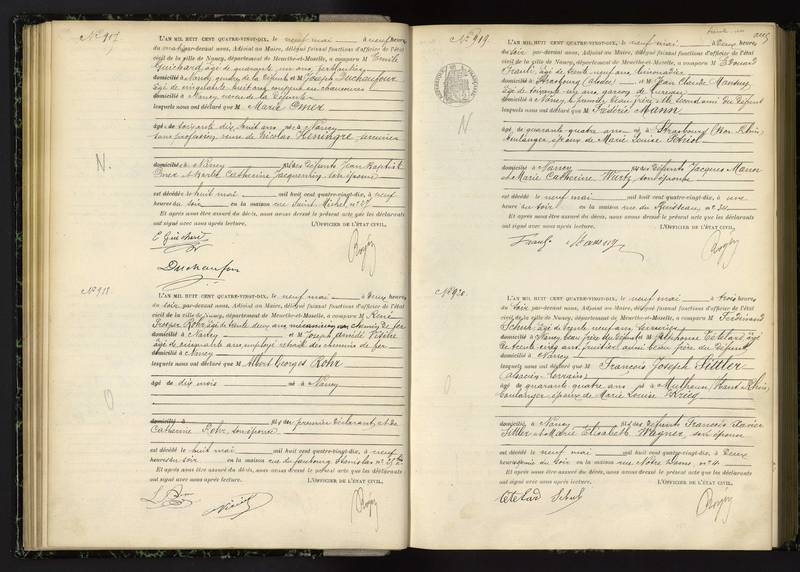 N° 917
L'AN MIL HUIT CENT QUATRE-VINGT-DIX, le neuf mai à neuf heures
du matin par-devant nous, Adjoint au Maire, délégué faisant fonctions d'officier de l'état
civil de la ville de Nancy, département de Meurthe-et-Moselle, a comparu M Emile
Guichard, âgé de quarante un ans
domicilié à Nancy, gendre de la défunte et M Joseph Duchaufour
âgé de cinquante huit ans, employé en chaussures
domicilié à Nancy, neveu de la défunte
lesquels nous ont déclaré que M Marie
âgée de soixante dix huit ans née à Nancy
sans profession, veuve de Nicolas
domiciliée à Nancy fille des défunts Jean Baptiste
et Catherine Jacquemin, son épouse
est décédée le huit mai mil huit cent quatre-vingt-dix, à neuf
heures du soir en la maison rue Saint Michel, n° 27
Et après nous être assuré du décès, nous avons dressé le présent acte que les déclarants
ont signé avec nous après lecture. L'OFFICIER DE L'ÉTAT CIVIL,
N.
E Guichard
Duchaufour
N° 918
L'AN MIL HUIT CENT QUATRE-VINGT-DIX, le neuf mai à deux heures
du soir par-devant nous, Adjoint au Maire, délégué faisant fonctions d'officier de l'état
civil de la ville de Nancy, département de Meurthe-et-Moselle, a comparu M René
Prosper Rohr, âgé de trente deux ans, mécanicien au chemin de fer
domicilié à Nancy et M Joseph
âgé de cinquante ans, employé retraité des chemins de fer
domicilié à Nancy
lesquels nous ont déclaré que M Albert Georges Rohr
âgé de dix mois né à Nancy
domicilié à fils du premier déclarant, et de
Catherine Rohr, son épouse
est décédé le huit mai mil huit cent quatre-vingt-dix, à neuf
heures du soir en la maison rue du faubourg Stanislas n°
Et après nous être assuré du décès, nous avons dressé le présent acte que les déclarants
ont signé avec nous après lecture. L'OFFICIER DE L'ÉTAT CIVIL,
N° 919
L'AN MIL HUIT CENT QUATRE-VINGT-DIX, le neuf mai à deux heures
du soir par-devant nous, Adjoint au Maire, délégué faisant fonctions d'officier de l'état
civil de la ville de Nancy, département de Meurthe-et-Moselle, a comparu M Edouard
âgé de trente neuf ans, limonadier
domicilié à Strasbourg (Alsace) et M Jean Claude Mansuy
âgé de soixante six ans, garçon de bureau
domicilié à Nancy, le premier beau frère, le second ami du défunt
lesquels nous ont déclaré que M Frédéric Mann
âgé de quarante quatre ans né à Strasbourg (Bas Rhin)
boulanger, époux de Marie Louise
domicilié à Nancy fils des défunts Jacques Mann
et Marie Catherine Wurtz, son épouse
est décédé le neuf mai mil huit cent quatre-vingt-dix, à une
heure du soir en la maison rue du Ruisseau, n° 34
Et après nous être assuré du décès, nous avons dressé le présent acte que les déclarants
ont signé avec nous après lecture. L'OFFICIER DE L'ÉTAT CIVIL,
N
Mansuy
N° 920
L'AN MIL HUIT CENT QUATRE-VINGT-DIX, le neuf mai à trois heures
du soir par-devant nous, Adjoint au Maire, délégué faisant fonctions d'officier de l'état
civil de la ville de Nancy, département de Meurthe-et-Moselle, a comparu M Ferdinand
Schuh, âgé de trente neuf ans, serrurier
domicilié à Nancy, beau frère du défunt et M Alphonse Etelard, âgé
de trente cinq ans, fruitier, aussi beau frère du défunt
domicilié à Nancy
lesquels nous ont déclaré que M François Joseph Sittler
(Alsacien-Lorrain)
âgé de quarante quatre ans né à Mulhouse (Haut Rhin)
boulanger, époux de Marie Louise Krieg
domicilié à Nancy fils des défunts François Xavier
Sittler et Marie Elisabeth Wagner, son épouse
est décédé le neuf mai mil huit cent quatre-vingt-dix, à deux
heures du soir en la maison rue Notre Dame, n° 4
Et après nous être assuré du décès, nous avons dressé le présent acte que les déclarants
ont signé avec nous après lecture. L'OFFICIER DE L'ÉTAT CIVIL,
Etelard Schuh